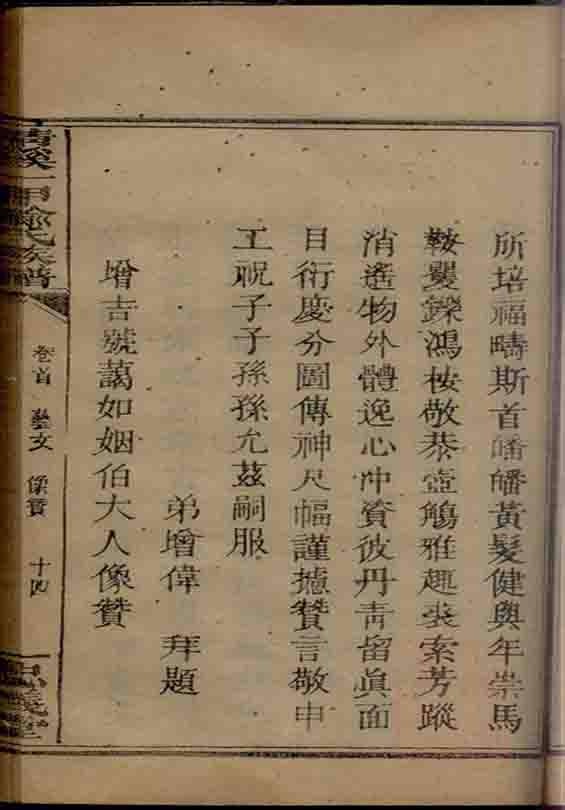 所培福疇斯首皤皤黃髮健與年崇馬
鞍矍鑠鴻桉敬恭壺觴雅趣裘索芳蹤
消遙物外體逸心冲資彼丹青留眞面
目衍慶分圖傳神尺幅謹攄贊言敬申
工祝子子孫孫允茲嗣服
弟增偉 拜題
增吉號藹如姻伯大人像贊
清溪一甲俞氏族譜
卷首 藝文 像贊 十四
義堂